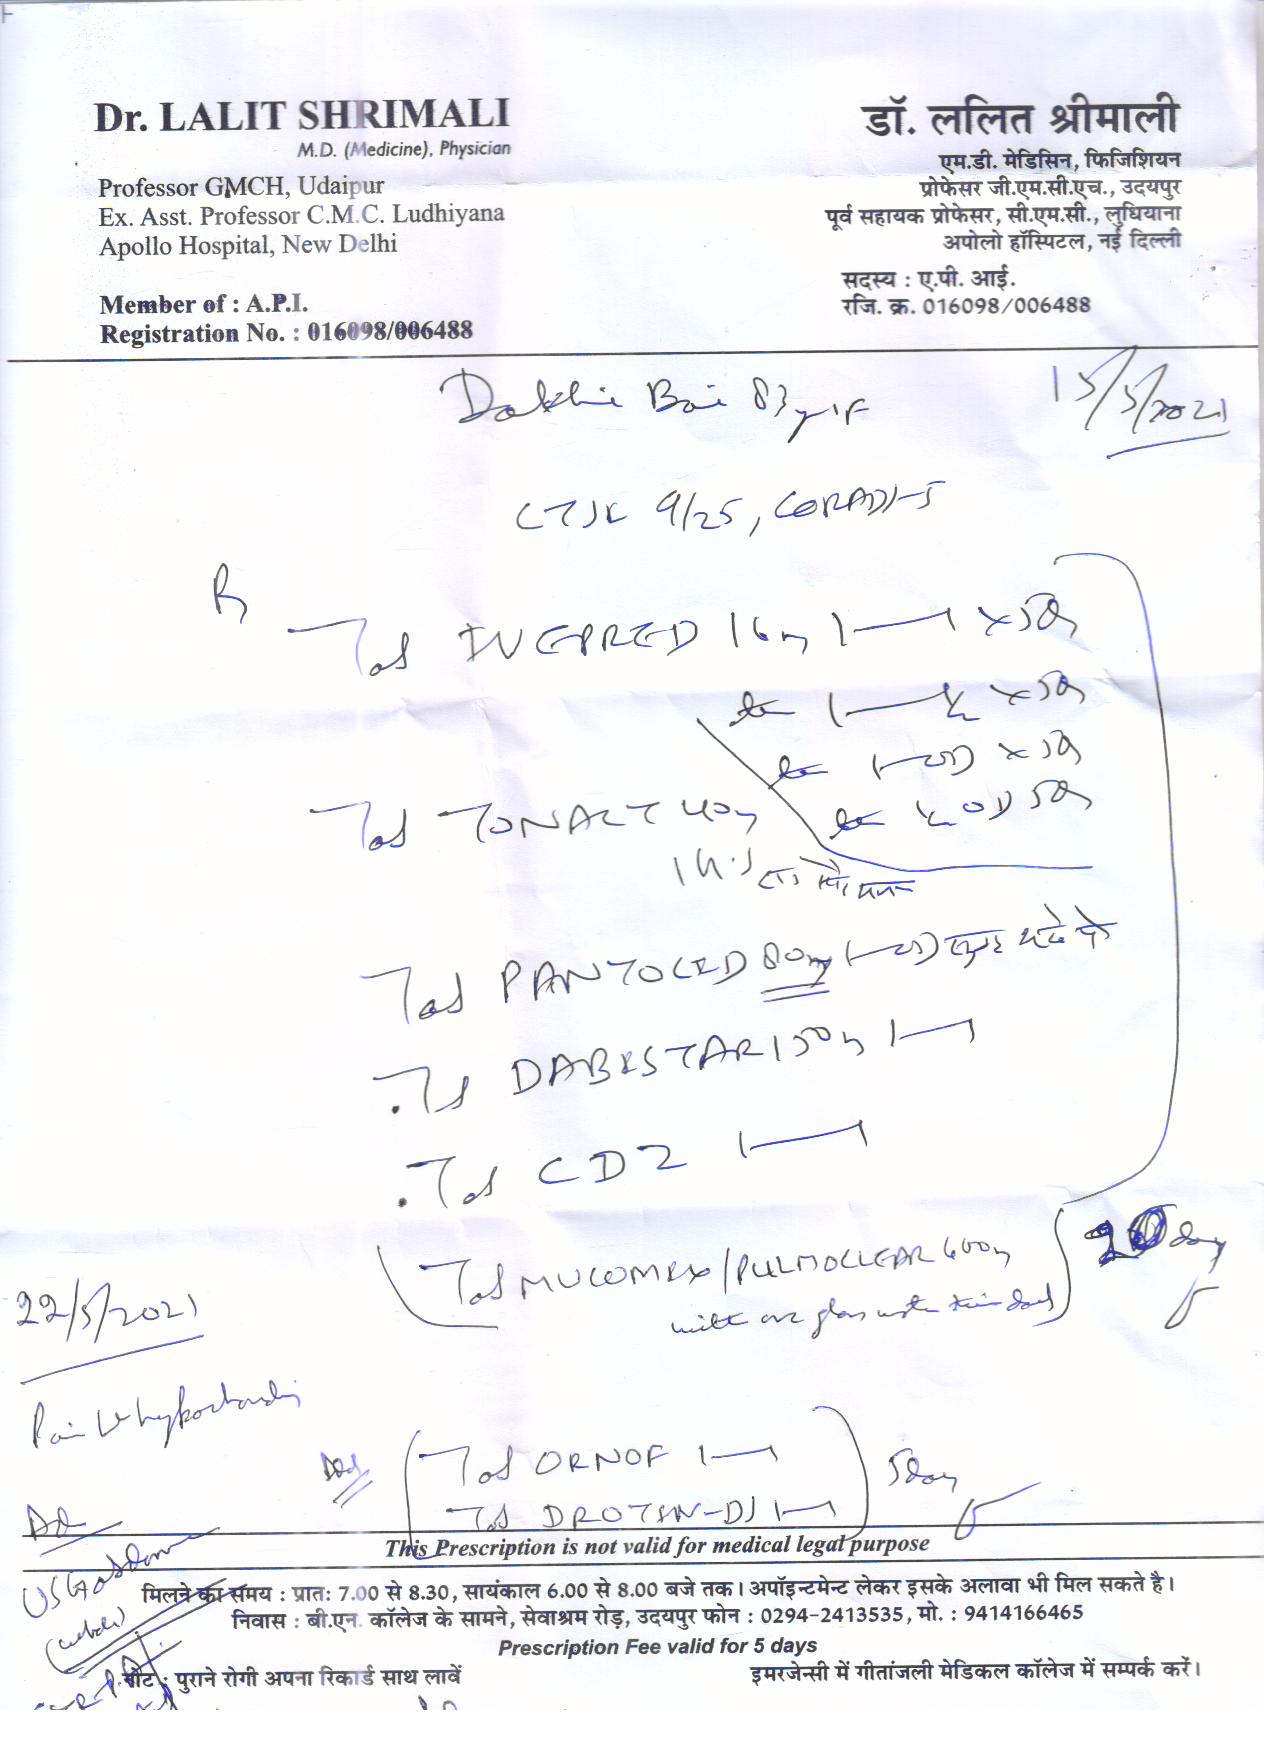 Dr. LALIT SHRIMALI
M.D. (Medicine), Physician
Professor GMCH, Udaipur
Ex. Asst. Professor C.M.C. Ludhiyana
Apollo Hospital, New Delhi
Member of : A.P.I.
Registration No. : 016098/006488
डॉ. ललित श्रीमाली
एम.डी. मेडिसिन, फिजिशियन
प्रोफेसर जी.एम.सी.एच., उदयपुर
पूर्व सहायक प्रोफेसर, सी.एम.सी., लुधियाना
अपोलो हॉस्पिटल, नई दिल्ली
सदस्य : ए.पी. आई.
रजि. क्र. 016098/006488
Dakhi Bai 83 yr/F
15/5/2021
CTSK 9/25, CORADI-5
R
Tab IVEPRED 16m 1—1 x5d
1—½ x5d
1—OD x5d
½ OD 5d
Tab TONACT 40m
1 H.S
Tab PANTOCED 80mg 1—OD
Tab DABISTAR 150m 1—1
Tab CDZ 1—1
Tab MUCOMIX/PULMOCLEAR 600m
with one glass water
day
22/5/2021
Pain
Add
Tab ORNOF 1—1
Tab DROTIN-DS 1—1
5day
Ad
USG abdomen
This Prescription is not valid for medical legal purpose
मिलने का समय : प्रातः 7.00 से 8.30, सायंकाल 6.00 से 8.00 बजे तक। अपॉइन्टमेन्ट लेकर इसके अलावा भी मिल सकते है।
निवास : बी.एन. कॉलेज के सामने, सेवाश्रम रोड़, उदयपुर फोन : 0294-2413535, मो. : 9414166465
Prescription Fee valid for 5 days
नोट : पुराने रोगी अपना रिकार्ड साथ लावें
इमरजेन्सी में गीतांजली मेडिकल कॉलेज में सम्पर्क करें।